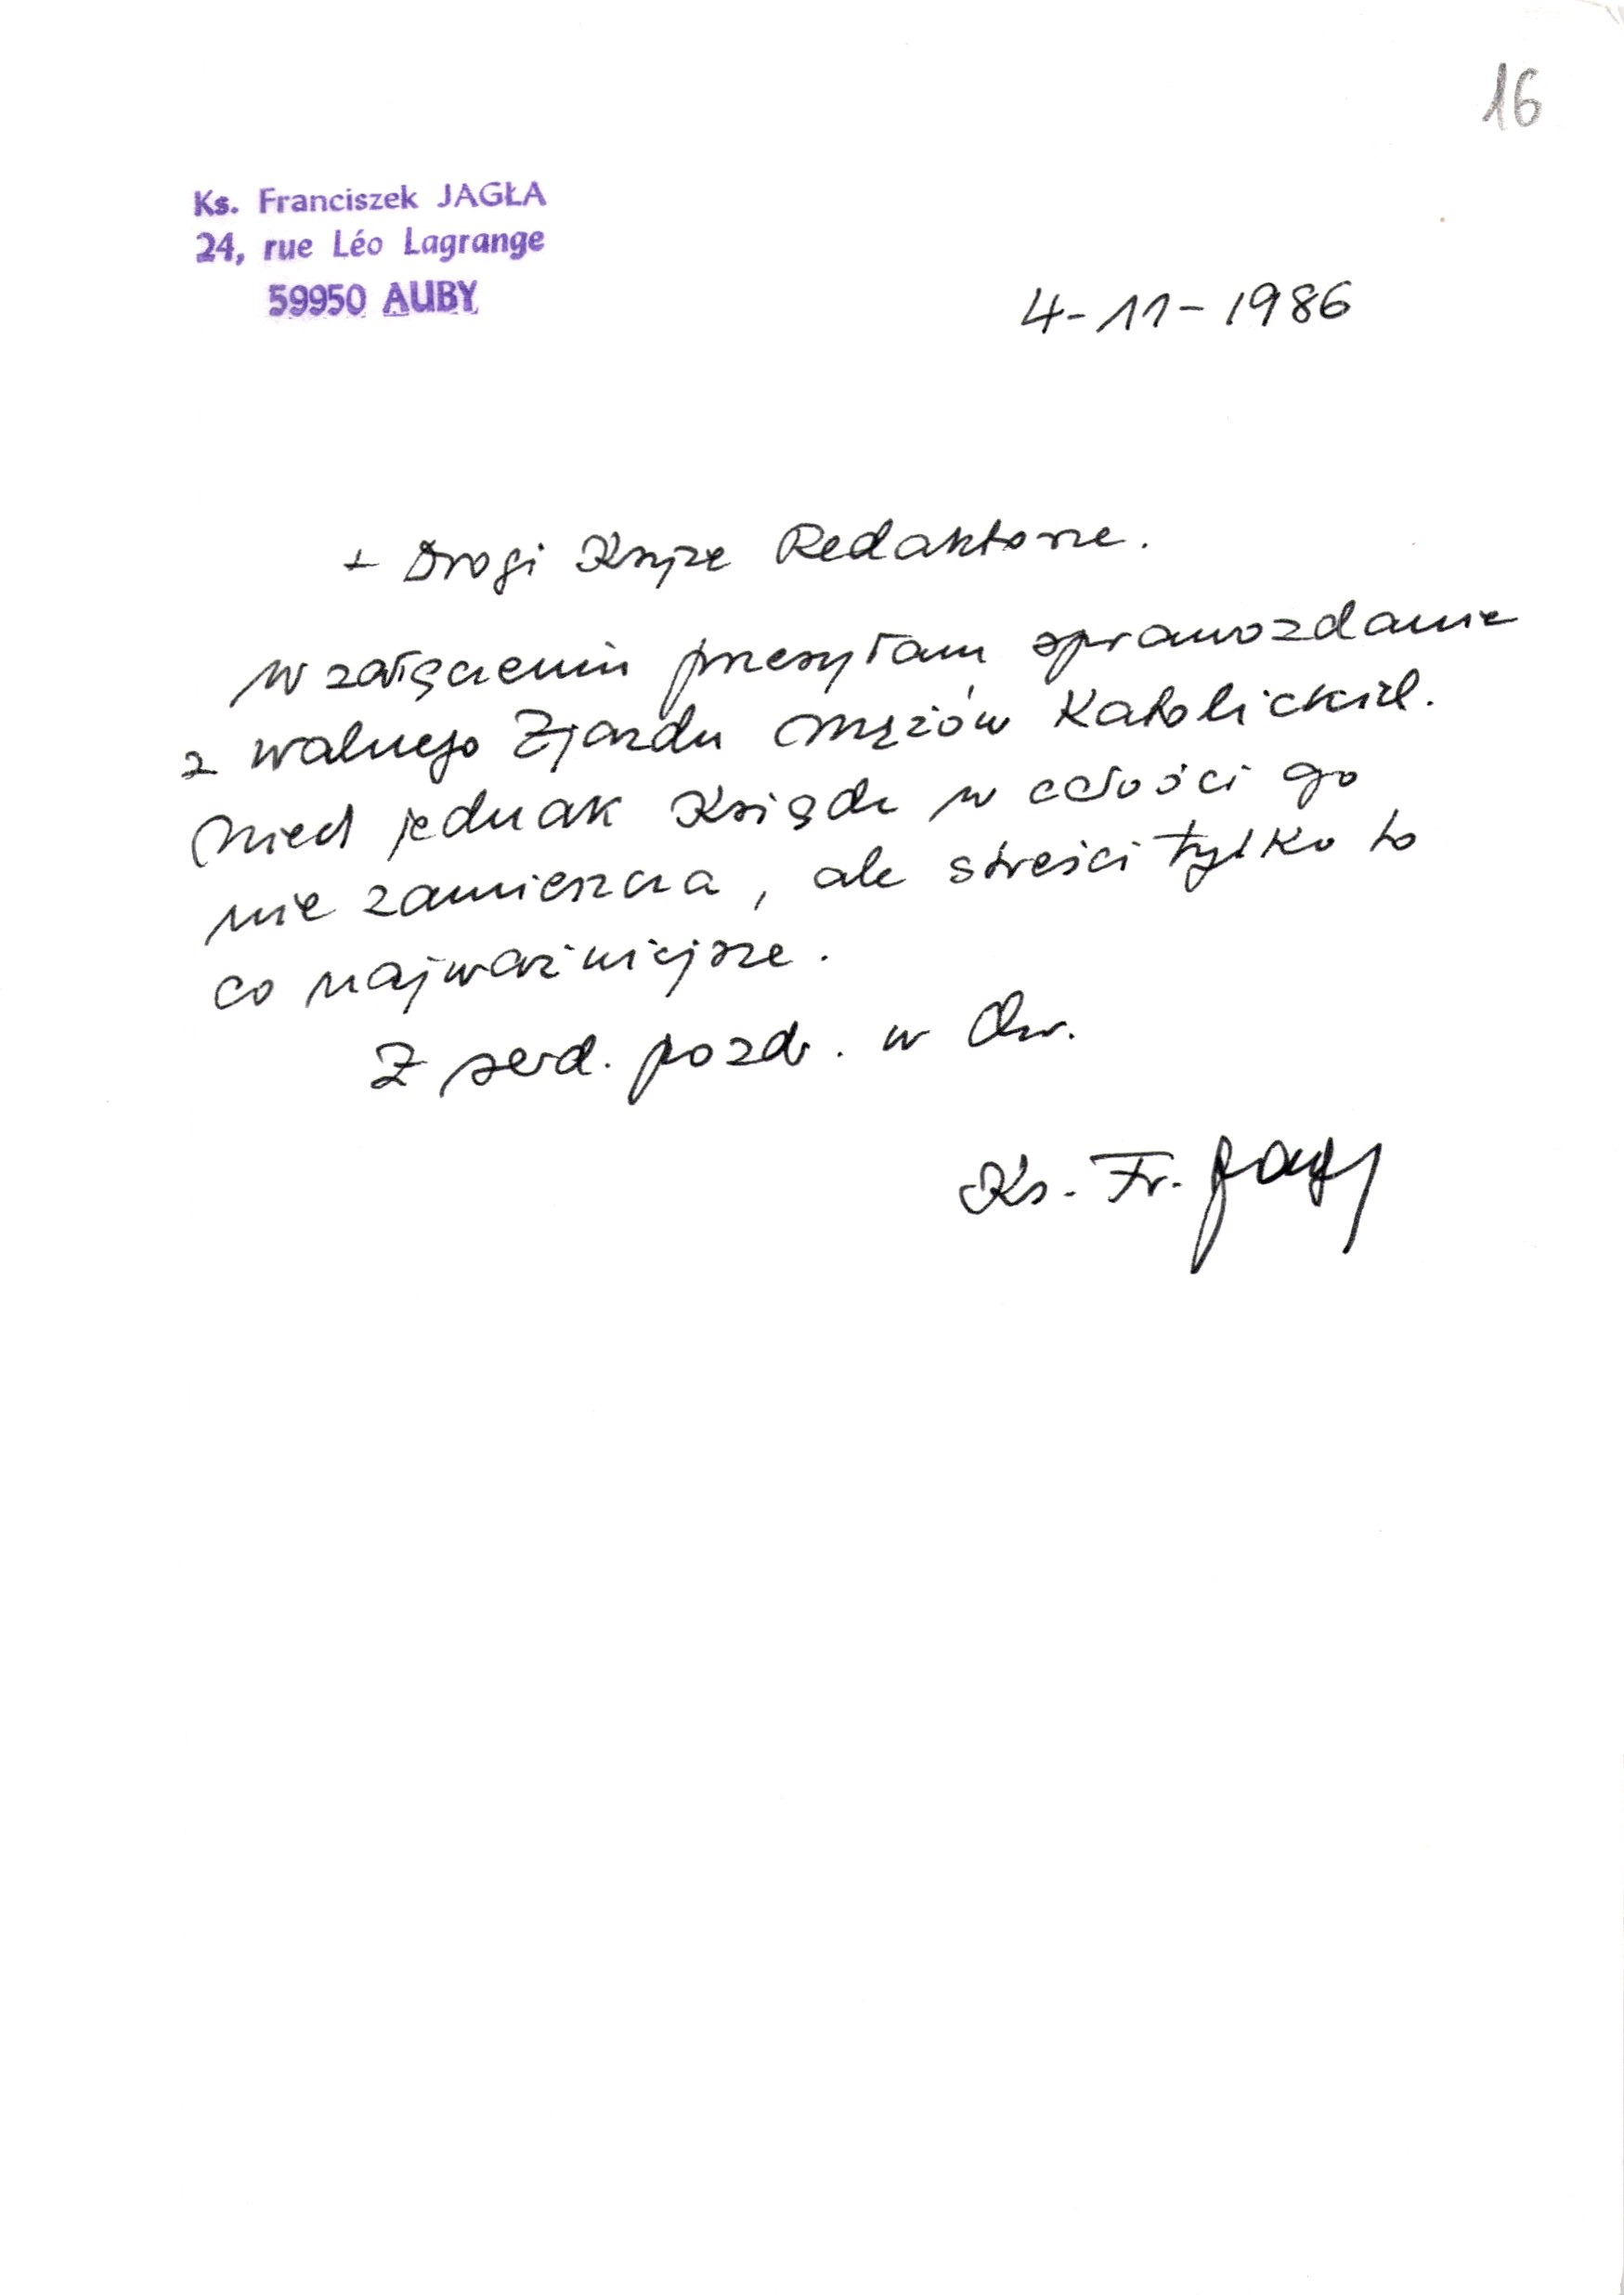 16
Ks. Franciszek JAGŁA
24, rue Léo Lagrange
59950 AUBY
4-11-1986
+ Drogi Księże Redaktorze.
W załączeniu przesyłam sprawozdanie
z walnego Zjazdu Mężów Katolickich.
Niech jednak Ksiądz w całości go
nie zamieszcza, ale streści tylko to
co najważniejsze.
Z serd. pozdr. w Chr.
Ks. Fr. Jagła